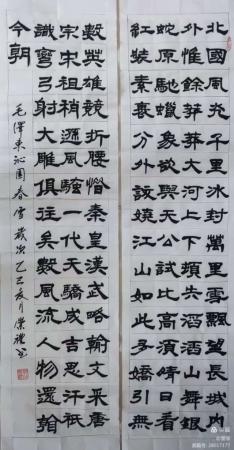 北國風光千里冰封萬里雪飄望長城內
外惟餘莽莽大河上下頓失滔滔山舞銀
蛇原馳蠟象欲與天公試比高須晴日看
紅裝素裹分外妖嬈江山如此多嬌引無
數英雄競折腰惜秦皇漢武略輸文采唐
宗宋祖稍遜風騷一代天驕成吉思汗祇
識彎弓射大雕俱往矣數風流人物還看
今朝
毛澤東沁園春雪歲次乙巳夏月榮禮書